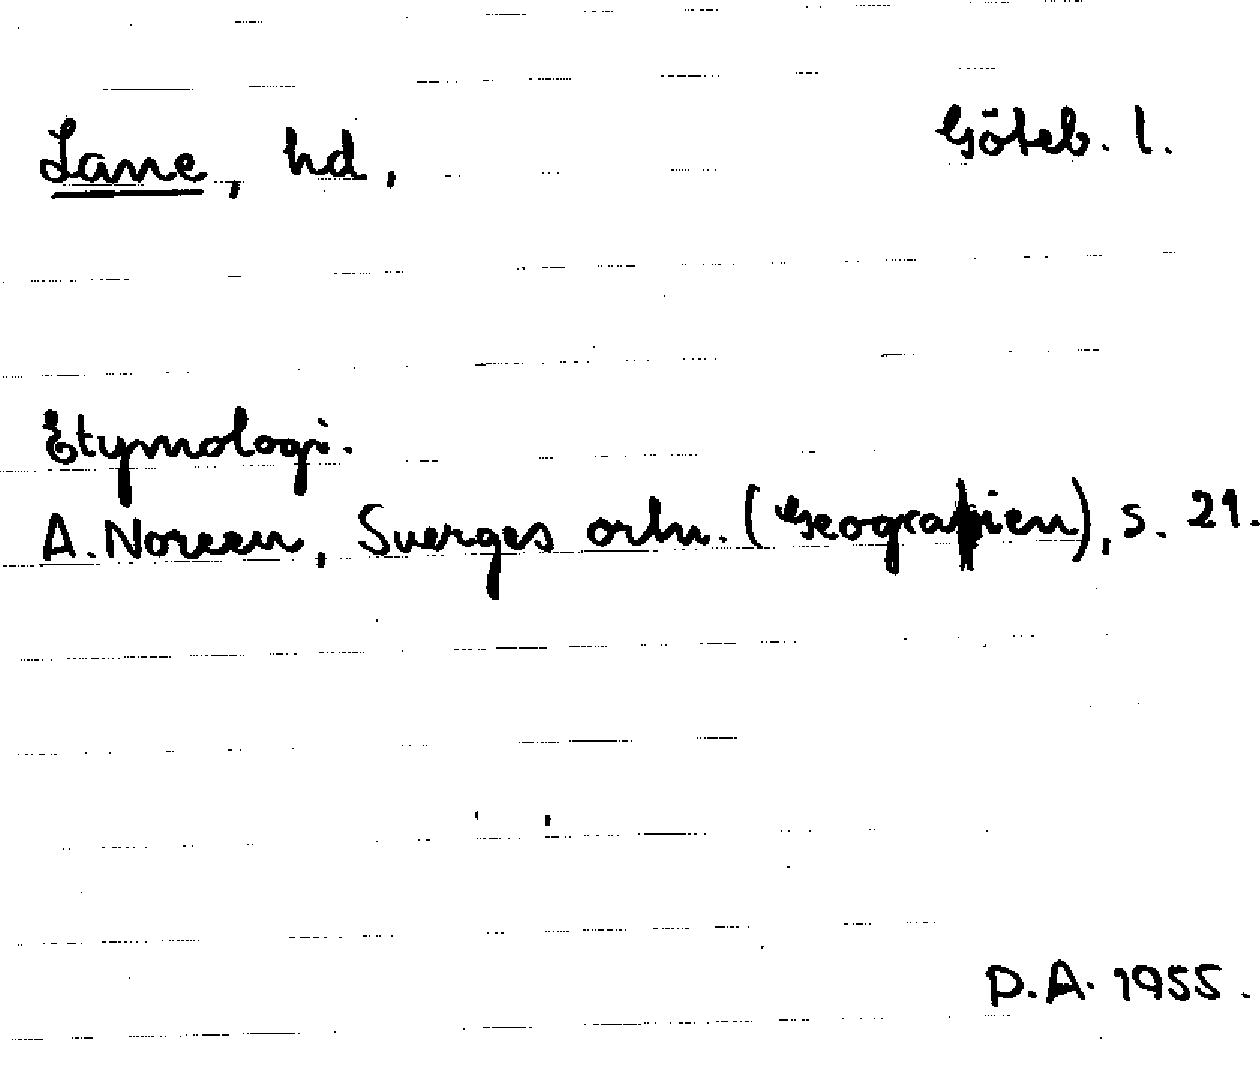 Lane, hd, Göteb. l.
Etymologi.
A. Noreen, Sverges ortn. (Geografien), s. 21.
D.A. 1955.